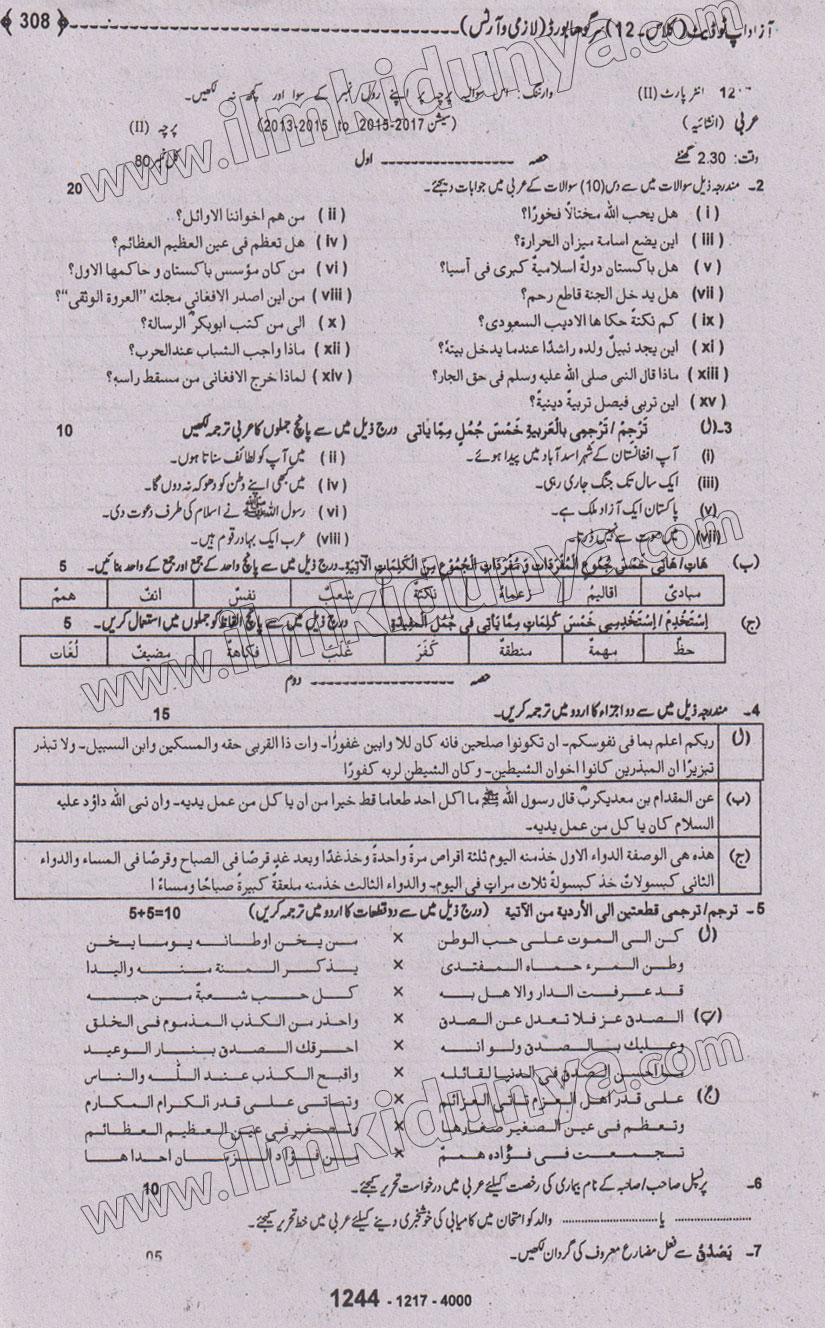 آزاد اپ ٹو ڈیٹ (کلاس۔12) سرگودھا بورڈ (لازمی و آرٹس) ﴿308﴾
12 انٹر پارٹ (II) وارننگ: اس سوالیہ پرچہ پر اپنے رول نمبر کے سوا اور کچھ نہ لکھیں۔
عربی (انشائیہ) (سیشن 2015-2017 to 2013-2015) پرچہ (II)
وقت: 2.30 گھنٹے حصہ ---- اول کل نمبر 80
2۔ مندرجہ ذیل سوالات میں سے دس (10) سوالات کے عربی میں جوابات دیجئے۔ 20
(i) هل يحب الله مختالًا فخورًا؟ (ii) من هم اخواننا الاوائل؟
(iii) اين يضع اسامة ميزان الحرارة؟ (iv) هل تعظم فى عين العظيم العظائم؟
(v) هل باكستان دولةً اسلاميةً كبرى فى آسيا؟ (vi) من كان مؤسس باكستان و حاكمها الاول؟
(vii) هل يدخل الجنة قاطع رحم؟ (viii) من اين اصدر الافغانى مجلته "العروة الوثقى"؟
(ix) كم نكتةً حكا ها الاديب السعودى؟ (x) الى من كتب ابوبكرؓ الرسالة؟
(xi) اين يجد نبيلٌ ولده راشدًا عندما يدخل بيته؟ (xii) ماذا واجب الشباب عندالحرب؟
(xiii) ماذا قال النبى صلى الله عليه وسلم فى حق الجار؟ (xiv) لماذا خرج الافغانى من مسقط راسه؟
(xv) اين تربى فيصل تربيةً دينيةً؟
3۔(ا) تَرْجِمْ/تَرْجِمِى بالعربية خَمْسَ جُمُلٍ مِمَّا يَأتى درج ذیل میں سے پانچ جملوں کا عربی ترجمہ لکھیں 10
(i) آپ افغانستان کے شہر اسد آباد میں پیدا ہوئے۔ (ii) میں آپ کو لطائف سناتا ہوں۔
(iii) ایک سال تک جنگ جاری رہی۔ (iv) میں کبھی اپنے وطن کو دھوکہ نہ دوں گا۔
(v) پاکستان ایک آزاد ملک ہے۔ (vi) رسول اللہ ﷺ نے اسلام کی طرف دعوت دی۔
(vii) میں موت سے نہیں ڈرتا۔ (viii) عرب ایک بہادر قوم ہیں۔
(ب) هَاتِ/هَاتِى خَمْسَ جُمُوعِ الْمُفْرَدَاتِ وَ مُفْرَدَاتِ الْجُمُوْعِ مِنَ الْكَلِمَاتِ الْآتِيَةِ۔ درج ذیل میں سے پانچ واحد کے جمع اور جمع کے واحد بنائیں۔ 5
مبادئ اقاليم زعماءُ نكتةٌ شعبٌ نفسٌ انفٌ هممٌ
(ج) اِسْتَخْدِمْ/اِسْتَخْدِمِى خَمْسَ كَلِمَاتٍ مِمَّا يَأتِى فِى جُمَلِ درج ذیل میں سے پانچ الفاظ کو جملوں میں استعمال کریں۔ 5
حظٌّ مهمةٌ منطقةٌ كَفَرَ غَلَبَ فكاهةٌ مضيفٌ لُغَات
حصہ ---- دوم
4۔ مندرجہ ذیل میں سے دو اجزاء کا اردو میں ترجمہ کریں۔ 15
(ا) ربكم اعلم بما فى نفوسكم۔ ان تكونوا صلحين فانه كان للا وابين غفورًا۔ وات ذا القربى حقه والمسكين وابن السبيل۔ ولا تبذر
تبزيرًا ان المبذرين كانوا اخوان الشيطين۔ وكان الشيطن لربه كفورًا
(ب) عن المقدام بن معديكربؓ قال رسول الله ﷺ ما اكل احد طعاما قط خيرا من ان يا كل من عمل يديه۔ وان نبى الله داؤد عليه
السلام كان يا كل من عمل يديه۔
(ج) هذه هى الوصفة الدواء الاول خذمنه اليوم ثلثة اقراص مرةً واحدةً وخذغدًا وبعد غدٍ قرصًا فى الصباح وقرصًا فى المساء والدواء
الثانى كبسولاتٌ خذ كبسولةً ثلاث مراتٍ فى اليوم۔ والدواء الثالث خذمنه ملعقةً كبيرةً صباحًا ومساءً ا
5۔ ترجم/ترجمى قطعتين الى الأردية من الآتية (درج ذیل میں سے دو قطعات کا اردو میں ترجمہ کریں) 5+5=10
(ا) كن الى الموت على حب الوطن × من يخن اوطانه يوما يخن
وطن المرء حماه المفتدى × يذكر المنة منه واليدا
قد عرفت الدار والا هل به × كل حب شعبةٌ من حبه
(ب) الصدق عز فلا تعدل عن الصدق × واحذر من الكذب المذموم فى الخلق
وعليك بالصدق ولو انه × احرقك الصدق بنار الوعيد
ما احسن الصدق فى الدنيا لقائله × واقبح الكذب عند الله والناس
(ج) على قدر اهل العزم تاتى العزائم × وتاتى على قدر الكرام المكارم
وتعظم فى عين الصغير صغارها × وتصغر فى عين العظيم العظائم
تجمعت فى فؤاده هممٌ × من فؤاد الزمان احدا ها
6۔ پرنسپل صاحب/صاحبہ کے نام بیماری کی رخصت کیلئے عربی میں درخواست تحریر کیجئے۔ 10
یا والد کو امتحان میں کامیابی کی خوشخبری دینے کیلئے عربی میں خط تحریر کیجئے۔
7۔ يَصْدُقُ سے فعل مضارع معروف کی گردان لکھیں۔ 05
1244 - 1217 - 4000
www.ilmkidunya.com
www.ilmkidunya.com
www.ilmkidunya.com